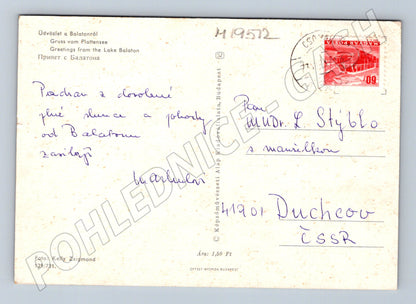 Üdvözlet a Balatonról
Gruss vom Plattensee
Greetings from the Lake Balaton
Привет с Балатона
M19572
Pozdrav z dovolené
plné slunce a pohody
od Balatonu
zasílají
Foto: Kelly Zsigmond
Ára: 1,50 Ft
OFFSET NYOMDA BUDAPEST
C Képzőművészeti Alap Kiadóvállalata, Budapest
MAGYAR POSTA
60
Pan
MUDr. L. Stýblo
s manželkou
41901 Duchcov
ČSSR
POHLEDNICE-CZECH